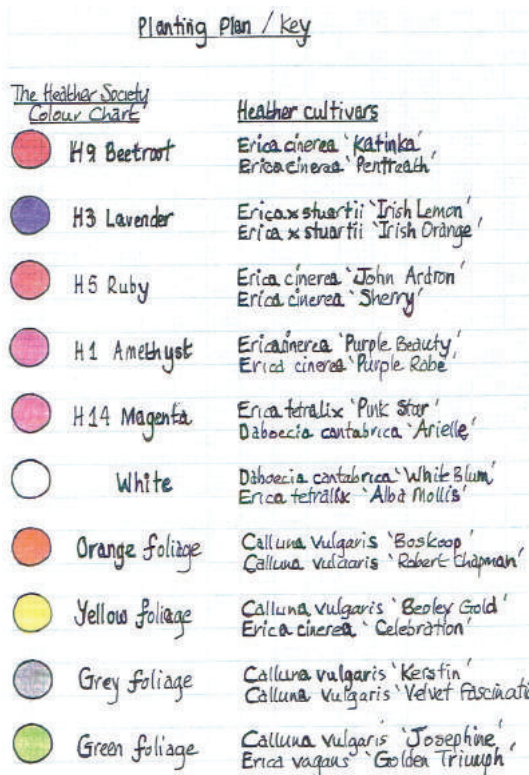 Planting Plan / Key
The Heather Society
Colour Chart
Heather cultivars
H9 Beetroot
Erica cinerea 'Katinka'
Erica cinerea 'Pentreath'
H3 Lavender
Erica x stuartii 'Irish Lemon'
Erica x stuartii 'Irish Orange'
H5 Ruby
Erica cinerea 'John Ardron'
Erica cinerea 'Sherry'
H1 Amethyst
Erica cinerea 'Purple Beauty'
Erica cinerea 'Purple Robe'
H14 Magenta
Erica tetralix 'Pink Star'
Daboecia cantabrica 'Arielle'
White
Daboecia cantabrica 'White Blum'
Erica tetralix 'Alba Mollis'
Orange foliage
Calluna vulgaris 'Boskoop'
Calluna vulgaris 'Robert Chapman'
Yellow foliage
Calluna vulgaris 'Beoley Gold'
Erica cinerea 'Celebration'
Grey foliage
Calluna vulgaris 'Kerstin'
Calluna vulgaris 'Velvet Fascinatio
Green foliage
Calluna vulgaris 'Josephine'
Erica vagans 'Golden Triumph'